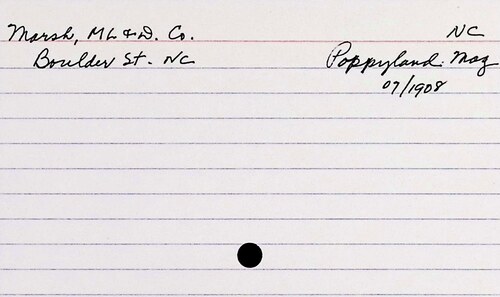 Marsh, ML & D. Co.
Boulder St. NC
NC
Poppyland Mag
07/1908